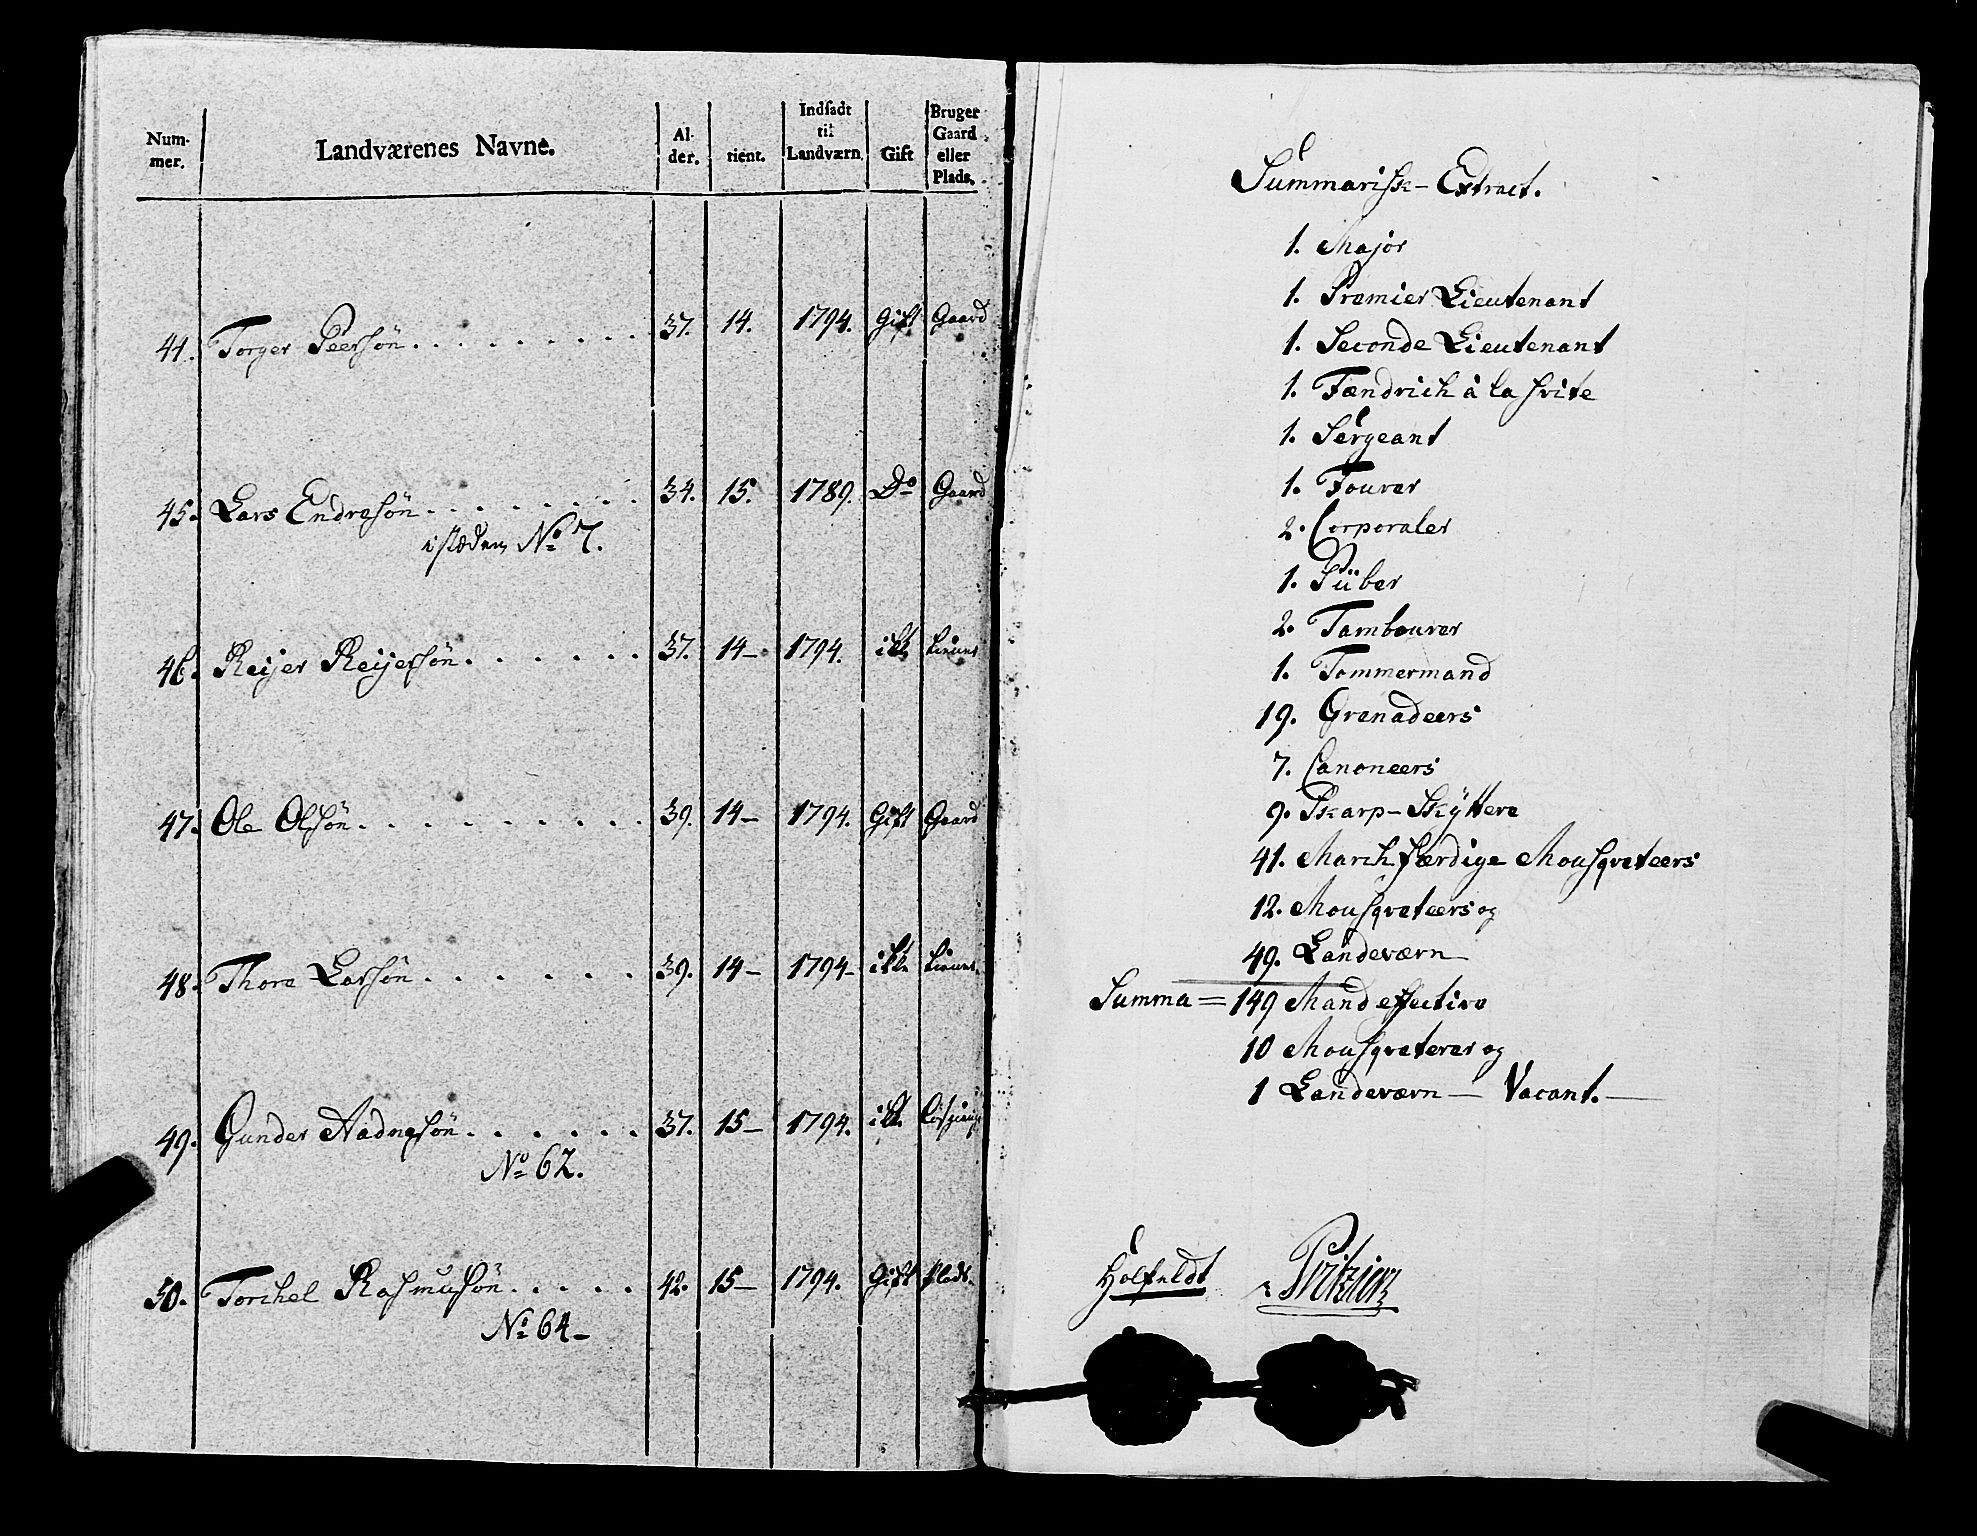 Num-
mer.
Landværenes Navne.
Al-
der.
tient.
Indsadt
til
Landværn.
Gift
Bruger
Gaard
eller
Plads.
44. Torger Peersøn . . . . . . . . . 37. 14. 1794. Gift Gaard
45. Lars Endresøn . . . . . . . 34. 15. 1789. Do Gaard
istæden No 7.
46. Reijer Reijersøn . . . . . . 37. 14– 1794. ikke tiener
47. Ole Olsøn . . . . . . . . . 39. 14– 1794. Gift Gaard
48. Thore Larsøn . . . . . . 39. 14– 1794– ikke tiener
49. Gunder Aadnesøn . . . . . . 37. 15– 1794. ikke
No 62.
50. Torchel Rasmusøn . . . . 42. 15– 1794. Gift plads.
No 64–
Summarisk – Extract.
1. Major
1. Premier Lieutenant
1. Seconde Lieutenant
1. Fændrich á la svite
1. Sergeant
1. Fourer
2. Corporaler
1. Piiber
2. Tambourer
1. Tømmermand
19. Grenadeers
7. Canoneers
9. Skarp-Skÿttere
41. Marchfærdige Mousqveteers
12. Mousqveteers og
49. Landeværn
Summa = 149 Mand effective
10 Mousqveterer og
1 Landeværn – Vacant. –
Holfeldt